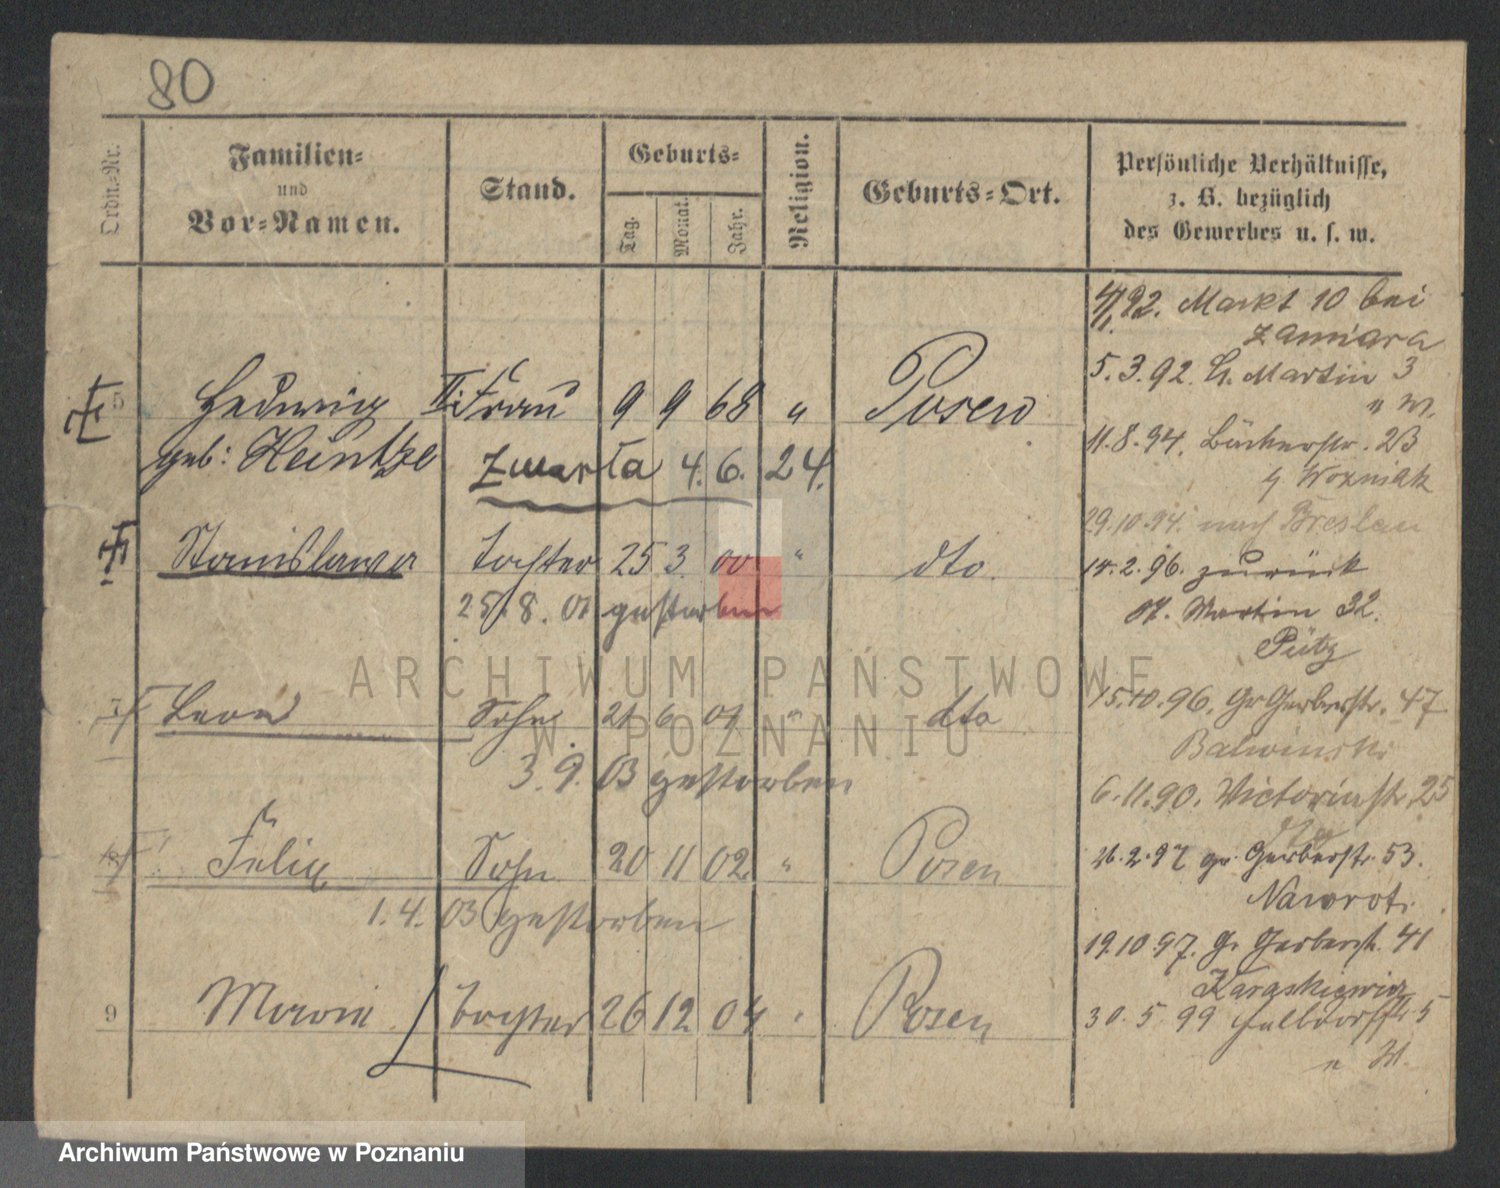 80
Ordn.-Nr.
Familien-
und
Vor-Namen.
Stand.
Geburts-
Tag.
Monat.
Jahr.
Religion.
Geburts-Ort.
Persönliche Verhältnisse,
z. B. bezüglich
des Gewerbes u. s. w.
5 Hedwig II. Frau 9 9 68 " Posen
geb: Heintze zmarła 4. 6. 24.
Stanislawa Tochter 25 3. 00 " dto.
25. 8. 01 gestorben
7 Leon Sohn 21 6 01 " dto
3. 9. 03 gestorben
8 Felix Sohn 20 11 02 " Posen
1. 4. 03 gestorben
9 Marie Tochter 26 12 04 " Posen
92. Markt 10 bei
5. 3. 92. St. Martin 3
n W.
11. 8. 94. Bäckerstr. 23
Wozniak
29. 10. 94. nach Breslau
14. 2. 96. zurück
Martin 32.
15. 10. 96. Gr Gerberstr. 47
6. 11. 90. Victoriastr. 25
26. 2. 97 gr. Gerberstr. 53.
Nawrot.
19. 10. 97. Gr Gerberstr. 41
30. 5. 99 5
n W.
ARCHIWUM PAŃSTWOWE
W POZNANIU
Archiwum Państwowe w Poznaniu